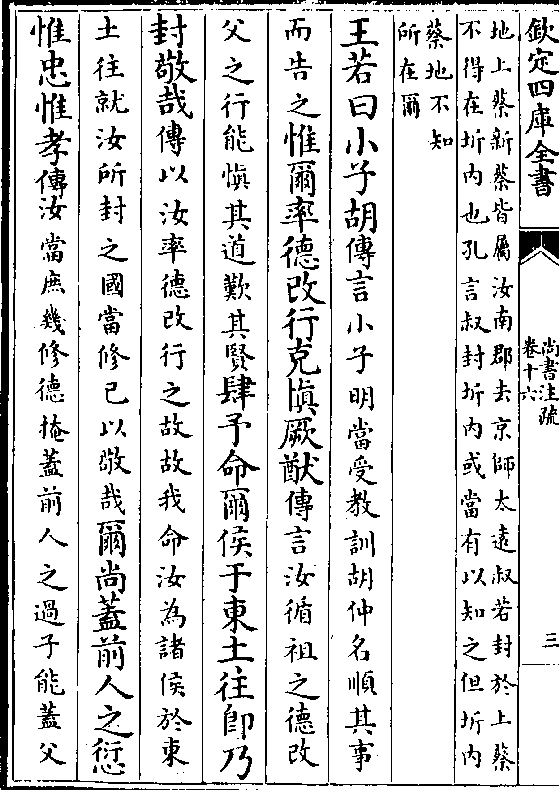 欽定四庫全書
尚書注疏
卷十六
三
地上蔡新蔡皆屬汝南郡去京師太遠叔若封於上蔡
不得在圻內也孔言叔封圻內或當有以知之但圻內
蔡地不知
所在爾
王若曰小子胡傳言小子明當受教訓胡仲名順其事
而告之惟爾率德改行克慎厥猷傳言汝循祖之德改
父之行能慎其道歎其賢肆予命爾侯于東土往即乃
封敬哉傳以汝率德改行之故故我命汝為諸侯於東
土往就汝所封之國當修已以敬哉爾尚蓋前人之愆
惟忠惟孝傳汝當庶幾修德掩蓋前人之過子能蓋父